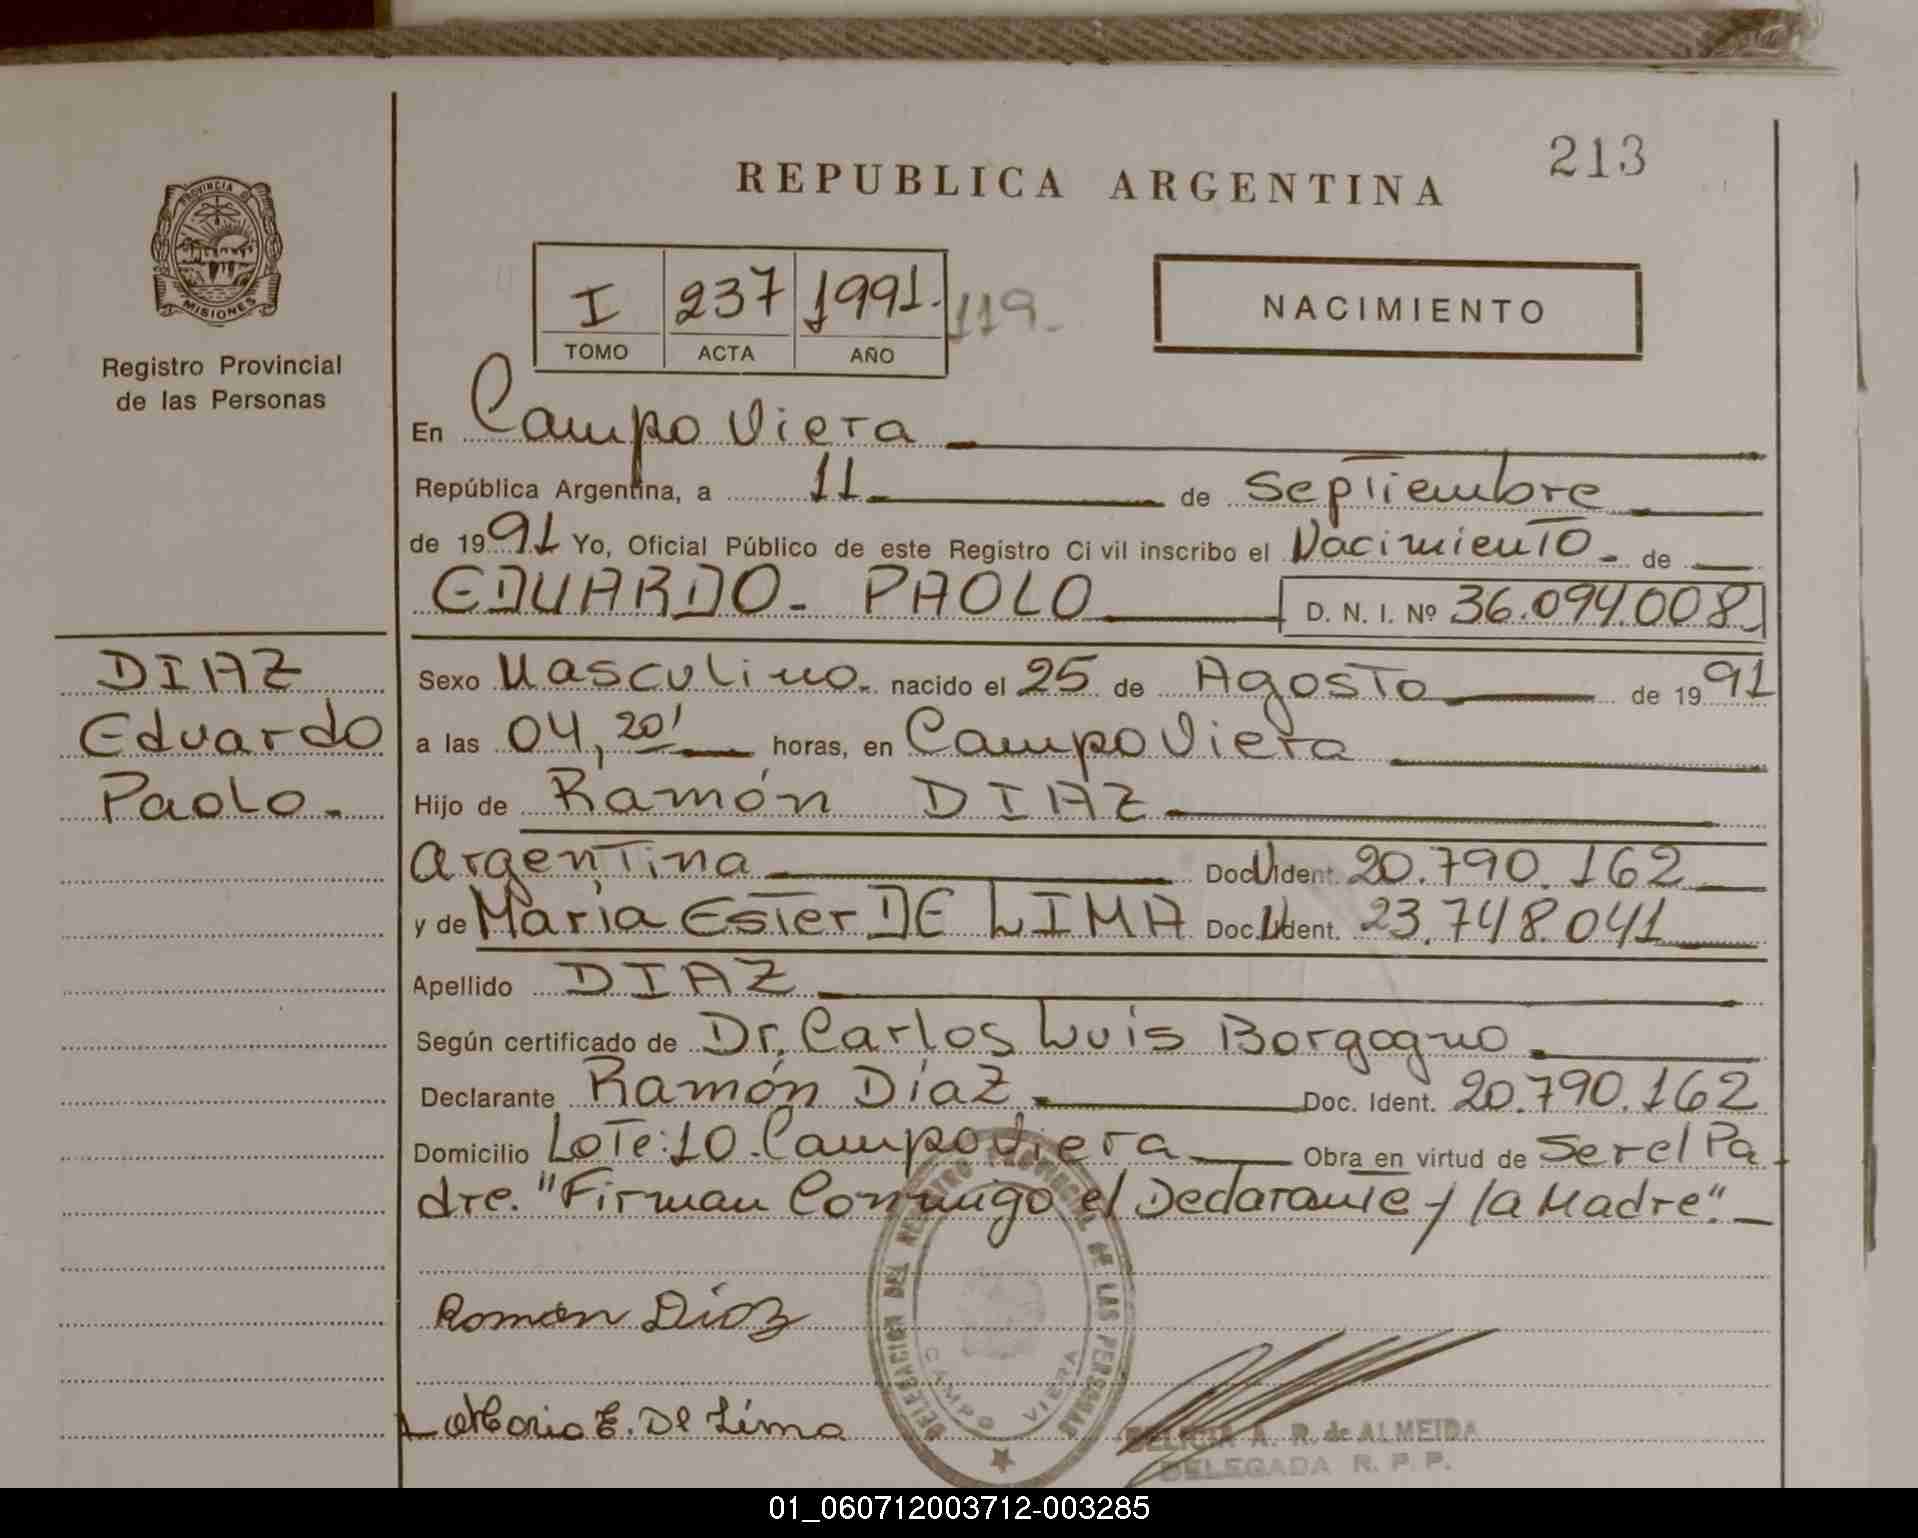 213
REPUBLICA ARGENTINA
PROVINCIA DE
MISIONES
Registro Provincial
de las Personas
I 237 1991. 119.
TOMO ACTA AÑO
NACIMIENTO
En Campo Viera
República Argentina, a 11 de Septiembre
de 1991 Yo, Oficial Público de este Registro Civil inscribo el Nacimiento. de
EDUARDO - PAOLO D. N. I. Nº 36.094.008
DIAZ
Eduardo
Paolo.
Sexo Masculino. nacido el 25 de Agosto de 1991
a las 04,20' horas, en Campo Viera
Hijo de Ramón DIAZ
Argentina Doc. Ident. 20.790.162
y de María Ester DE LIMA Doc. Ident. 23.748.041
Apellido DIAZ
Según certificado de Dr. Carlos Luis Borgogno
Declarante Ramón Díaz Doc. Ident. 20.790.162
Domicilio Lote: 10. Campo Viera Obra en virtud de Ser el Pa
dre. "Firman Conmigo el Declarante y la Madre".
Ramón Díaz
DELEGACION DEL REGISTRO PROVINCIAL DE LAS PERSONAS
CAMPO VIERA
E. De Lima
DELICIA A. R. de ALMEIDA
DELEGADA R. P. P.
01_060712003712-003285